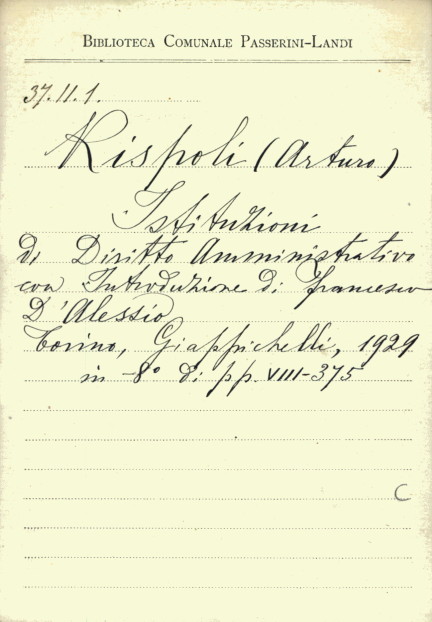 BIBLIOTECA COMUNALE PASSERINI-LANDI
37.II.1.
Rispoli (Arturo)
Istituzioni
di Diritto Amministrativo
con Introduzione di Francesco
D'Alessio
Torino, Giappichelli, 1929
in-8° di pp. VIII-375
C